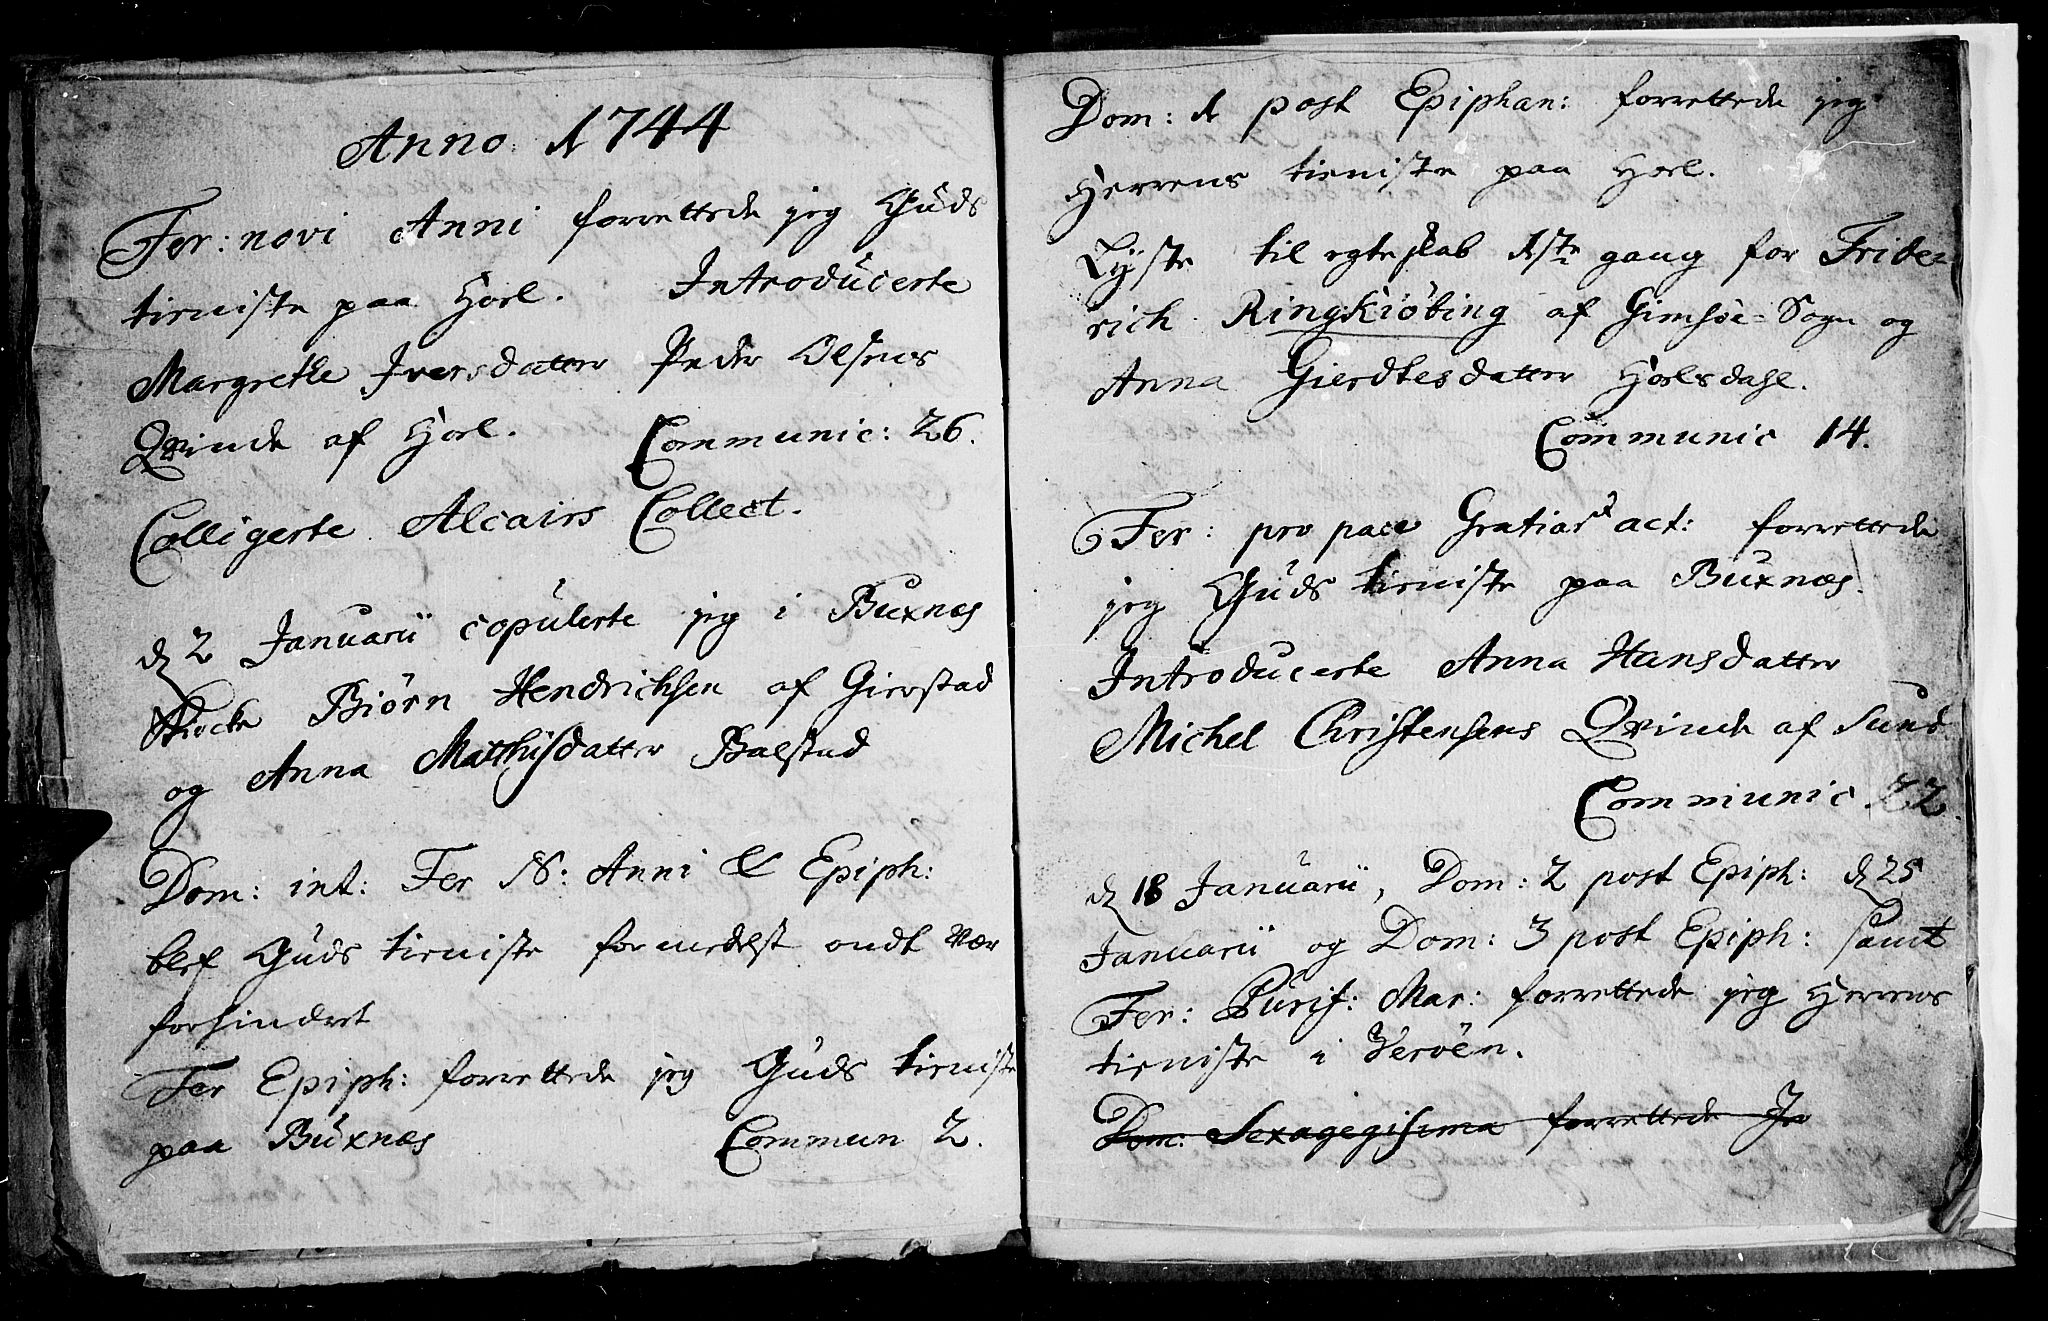 Anno 1744
Fer: novi Anni forrettede jeg Guds
tieniste paa Hoel. Introducerte
Margrethe Iversdatter Peder Olsens
Qvinde af Hoel. Communic: 26.
Colligerte Alcairs Collect.
d 2 Januarii copulerte jeg i Buxnæs
Kircke Biörn Hendrichsen af Gierstad
og Anna Matthisdatter Balstad
Dom: int: Fer N: Anni & Epiph:
blef Guds tieniste formedelst ondt Vær
forhindret
Fer Epiph: forrettede jeg Guds tieniste
paa Buxnæs Commun 2.
Dom: 1 post Epiphan: forrettede jeg
Herrens tieniste paa Hoel.
Lyste til egteskab 1ste gang for Fride-
rich Ringkiöbing af Gimsöe-Sogn og
Anna Gierdtesdatter Hoelsdahl.
Communic 14.
Fer: pro pace Gratiar act: forrettede
jeg Guds tieniste paa Buxnæs.
Introducerte Anna Hansdatter
Michel Christensens Qvinde af Sund
Communic 22
d 18 Januarii, Dom: 2 post Epiph: d 25
Januarii og Dom: 3 post Epiph: samt
Fer: Purif: Mar: forrettede jeg Herrens
tieniste i Veröen.
Dom: Sexagegisima forrettede Je